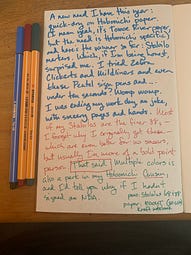 A new need I have this year:
quick-dry on Hobonichi paper.
I mean yeah, it's Tomoe River paper
but the need is Hobonichi specific
and here's the winner so far: Stabilo
markers. Which, if I'm being honest,
surprised me. I tried Zebra
Clickarts and Mildliners and even
blasé Pentel sign pens and...
under 10 seconds? Womp womp.
I was ending my work day on, joke,
with smeary pages and hands. Most
of my Stabilos are the finer 88s —
I forget why I originally got these
which are even better for us savers,
but usually I'm more of a bold point
person. That said: Multiple colors is
also a perk in my Hobonichi Cousin,
and I'd tell you why if I hadn't
signed an NDA.
pens: Stabilo 68 & 88
paper: